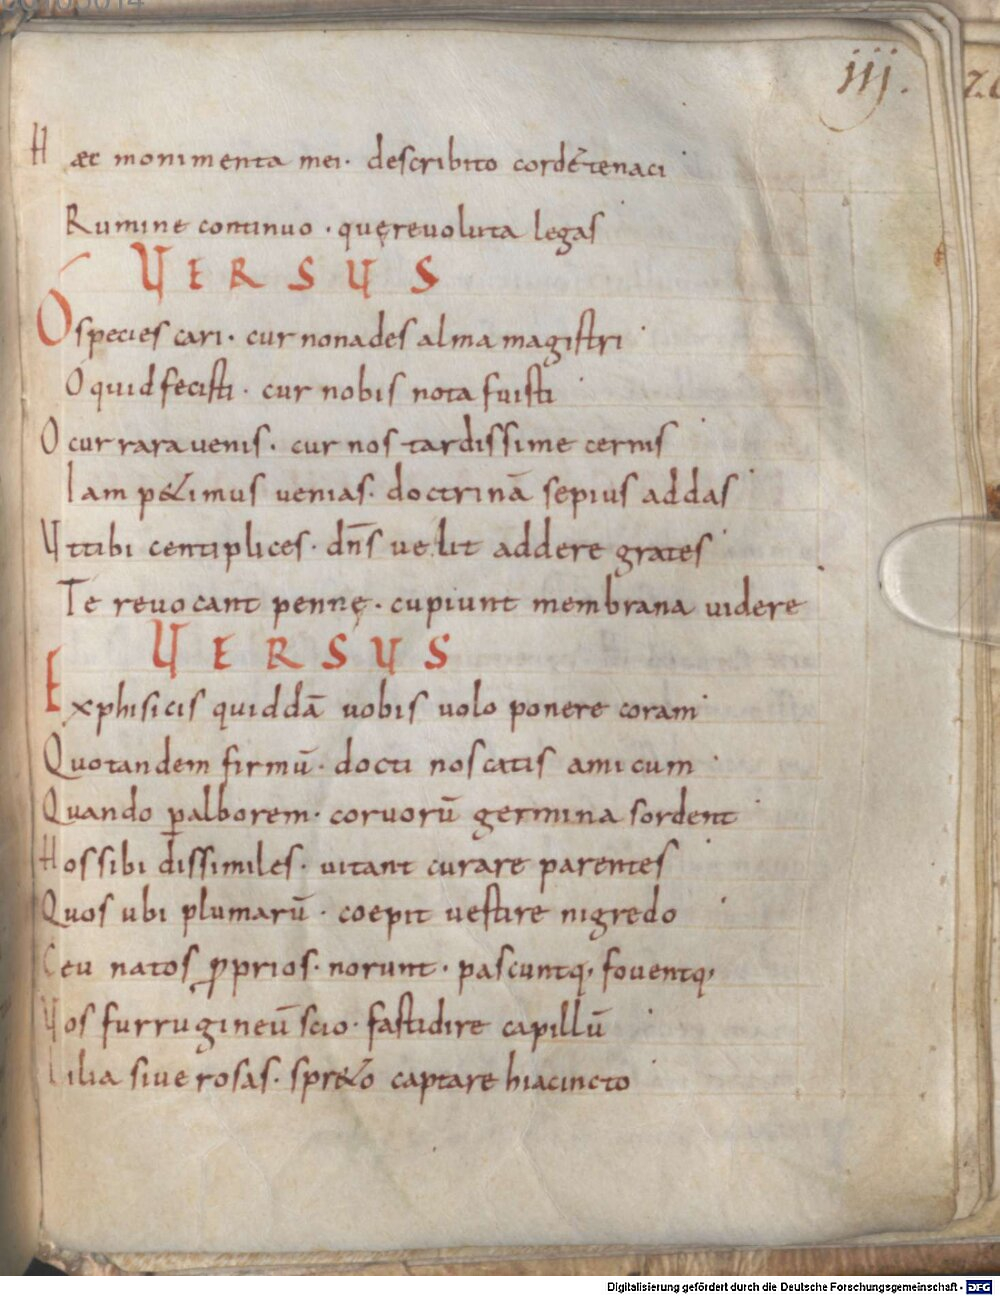 iij.
Hæc monimenta mei· describito cordẽ tenaci
Rumine continuo· quę revoluta legas
VERSUS
O species cari· cur non ades alma magistri
O quid fecisti· cur nobis nota fuisti
O cur rara venis· cur nos tardissime cernis
Iam p&imus venias· doctrinā sepius addas
Ut tibi centiplices· dn̄s velit addere grates
Te revocant pennę· cupiunt membrana videre
VERSUS
Ex phisicis quiddā vobis volo ponere coram
Quo tandem firmū· docti noscatis amicum
Quando ꝑ alborem· corvorū germina sordent
Hos sibi dissimiles· vitant curare parentes
Quos ubi plumarū· coepit vestire nigredo
Ceu natos ꝓprios· norunt· pascuntq; foventq;
Vos furrugineū scio· fastidire capillū
Lilia sive rosas· spr&o captare hiacincto
Digitalisierung gefördert durch die Deutsche Forschungsgemeinschaft - DFG